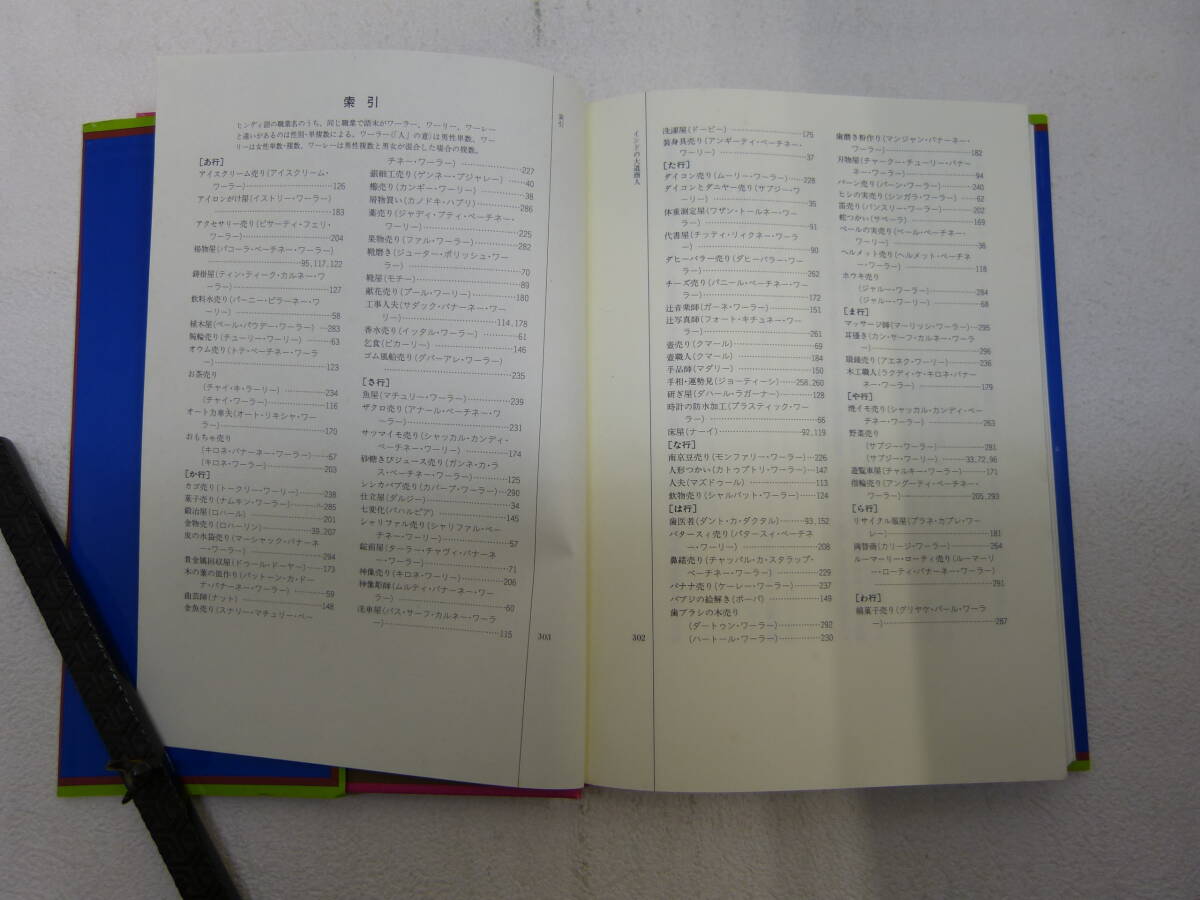 索引
ヒンディ語の職業名のうち、同じ職業で語末がワーラー、ワーリー、ワーレー
と違いがあるのは性別・単複数による。ワーラー(「人」の意)は男性単数、ワー
リーは女性単数・複数、ワーレーは男性複数と男女が混合した場合の複数。
[あ行]
アイスクリーム売り(アイスクリーム・
ワーラー)…………126
アイロンがけ屋(イストリー・ワーラー)
…………183
アクセサリー売り(ビサーティ・フェリ・
ワーラー)…………204
揚物屋(パコーラ・ベーチネー・ワーラー)
…………95,117,122
鋳掛屋(ティン・ティーク・カルネー・ワ
ーラー)…………127
飲料水売り(パーニー・ピラーネー・ワ
ーラー)…………58
植木屋(ペール・パウデー・ワーラー)…283
腕輪売り(チューリー・ワーリー)……63
オウム売り(トテ・ベーチネー・ワーラ
ー)…………123
お茶売り
(チャイ・キ・ラーリー)…………234
(チャイ・ワーラー)…………116
オート力車夫(オート・リキシャ・ワー
ラー)…………170
おもちゃ売り
(キロネ・バナーネー・ワーラー)…67
(キロネ・ワーラー)…………203
[か行]
カゴ売り(トークリー・ワーリー)……238
菓子売り(ナムキン・ワーラー)……285
鍛冶屋(ロハール)…………201
金物売り(ロハーリン)…………39,207
皮の水袋売り(マーシャック・バナーネ
ー・ワーラー)…………294
貴金属回収屋(ドゥール・ドーヤー)……173
木の葉の皿作り(パットーン・カ・ドー
ナ・バナーネー・ワーラー)……59
曲芸師(ナット)…………148
金魚売り(スナリー・マチュリー・ベー
チネー・ワーラー)…………227
銀細工売り(ゲンネー・プジャレー)……40
櫛売り(カンギー・ワーリー)…………38
屑物買い(カノドキ・ハブリ)…………286
薬売り(ジャディ・ブティ・ベーチネー・
ワーラー)…………225
果物売り(ファル・ワーラー)…………282
靴磨き(ジューター・ポリッシュ・ワー
ラー)…………70
靴屋(モチー)…………89
献花売り(プール・ワーリー)…………180
工事人夫(サダック・バナーネー・ワー
リー)…………114,178
香水売り(イッタル・ワーラー)…………61
乞食(ビカーリー)…………146
ゴム風船売り(グバーアレ・ワーラー)
…………235
[さ行]
魚屋(マチュリー・ワーラー)…………239
ザクロ売り(アナール・ベーチネー・ワ
ーラー)…………231
サツマイモ売り(シャッカル・カンディ・
ベーチネー・ワーラー)…………174
砂糖きびジュース売り(ガンネ・カ・ラ
ス・ベーチネー・ワーラー)…………125
シシカバブ売り(カバーブ・ワーラー)…290
仕立屋(ダルジー)…………34
七変化(バハルピア)…………145
シャリファル売り(シャリファル・ベー
チネー・ワーリー)…………57
絵画屋(ターラー・チャヴィ・バナーネ
ー・ワーラー)…………71
神像売り(キロネ・ワーリー)…………206
神像彫師(ムルティ・バナーネー・ワー
ラー)…………60
洗車屋(バス・サーフ・カルネー・ワーラ
ー)…………115
303
索引
インドの大道商人
302
洗濯屋(ドービー)…………175
装身具売り(アンギーティ・ベーチネー・
ワーリー)…………37
[た行]
ダイコン売り(ムーリー・ワーラー)……228
ダイコンとダニヤー売り(サブジー・ワ
ーラー)…………35
体重測定屋(ワザン・トールネー・ワー
ラー)…………91
代書屋(チッティ・リィクネー・ワーラ
ー)…………90
ダヒーバラー売り(ダヒーバラー・ワー
ラー)…………262
チーズ売り(パニール・ベーチネー・ワ
ーラー)…………172
辻音楽師(ガーネ・ワーラー)…………151
辻写真師(フォート・キチュネー・ワー
ラー)…………261
壺売り(クマール)…………69
壺職人(クマール)…………184
手品師(マダリー)…………150
手相・運勢見(ジョーティーシ)……258,260
研ぎ屋(ダハール・ラガーナー)………128
時計の防水加工(プラスティック・ワー
ラー)…………66
床屋(ナーイ)…………92,119
[な行]
南京豆売り(モンファリー・ワーラー)…226
人形つかい(カトゥプトリ・ワーラー)…147
人夫(マズドゥール)…………113
飲物売り(シャルバット・ワーラー)……124
[は行]
歯医者(ダント・カ・ダクタル)……93,152
バタースィ売り(バタースィ・ベーチネ
ー・ワーリー)…………208
鼻緒売り(チャッパル・カ・スタラップ・
ベーチネー・ワーラー)…………229
バナナ売り(ケーレー・ワーラー)……237
パブジの絵解き(ボーパ)…………149
歯ブラシの木売り
(ダートゥン・ワーラー)…………292
(ハートール・ワーラー)…………230
歯磨き粉作り(マンジャン・バナーネー・
ワーラー)…………182
刃物屋(チャークー・チューリー・バナー
ネー・ワーラー)…………94
パーン売り(パーン・ワーラー)………240
ヒシの実売り(シンガラ・ワーラー)……62
笛売り(バンスリー・ワーラー)………202
蛇つかい(サペーラ)…………169
ベールの実売り(ベール・ベーチネー・
ワーリー)…………36
ヘルメット売り(ヘルメット・ベーチネ
ー・ワーラー)…………118
ホウキ売り
(ジャルー・ワーラー)…………284
(ジャルー・ワーリー)…………68
[ま行]
マッサージ師(マーリッシ・ワーラー)…295
耳掻き(カン・サーフ・カルネー・ワーラ
ー)…………296
眼鏡売り(アエネク・ワーリー)………236
木工職人(ラクディ・ケ・キロネ・バナー
ネー・ワーラー)…………179
[や行]
焼イモ売り(シャッカル・カンディ・ベー
チネー・ワーラー)…………263
野菜売り
(サブジー・ワーラー)…………281
(サブジー・ワーリー)………33,72,96
遊覧車屋(チャルキー・ワーラー)………171
指輪売り(アングーティ・ベーチネー・
ワーラー)…………205,293
[ら行]
リサイクル服屋(プラネ・カプレ・ワー
レー)…………181
両替商(カリージ・ワーラー)…………264
ルーマーリー・ローティ売り(ルーマーリ
ー・ローティ・バナーネー・ワーラー)
…………291
[わ行]
綿菓子売り(グリヤケ・バール・ワーラ
ー)…………287